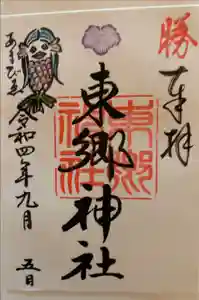 勝
奉拝
東郷神社
東郷神社
あまびゑ
令和四年九月
五日